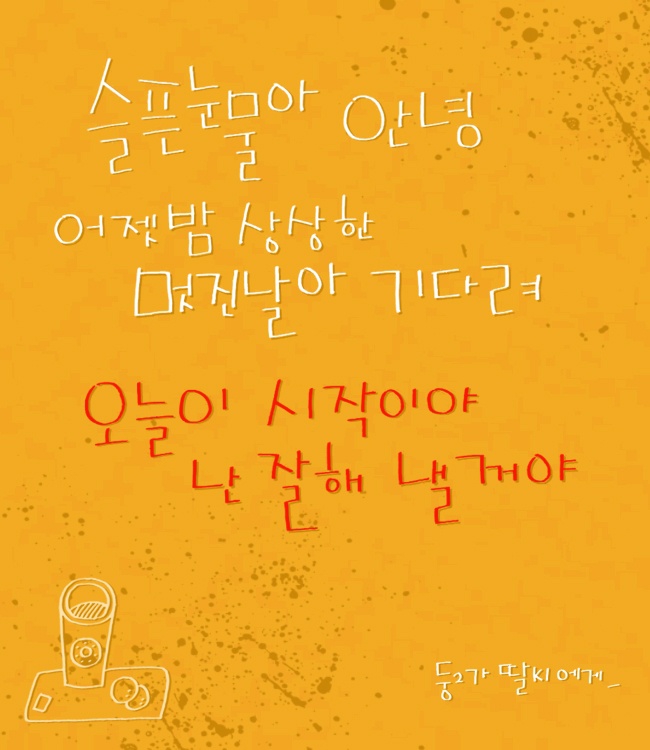 슬픈눈물아 안녕
어젯밤 상상한
멋진날아 기다려
오늘이 시작이야
난 잘해 낼거야
둥2가 딸씨에게_